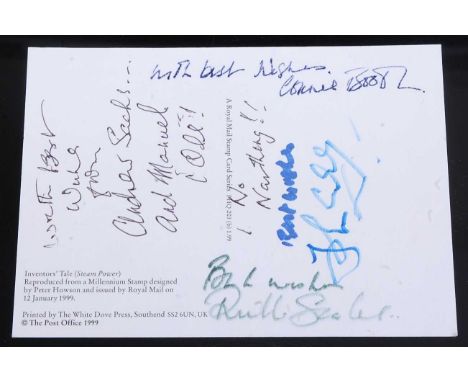 with best wishes.
Connie Booth.
with Best
Wishes
from
Andrew Sachs...
And Manuel
¡Olé!!
¡ No
Nanthing!!
A Royal Mail Stamp Card Series
Best wishes
Best wishes
Prunella Scales.
Inventors' Tale (Steam Power)
Reproduced from a Millennium Stamp designed
by Peter Howson and issued by Royal Mail on
12 January 1999.
Printed by The White Dove Press, Southend SS2 6UN, UK
© The Post Office 1999